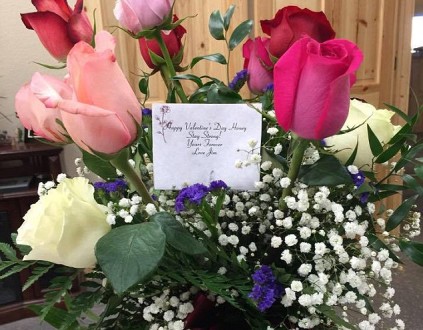 Happy Valentine's Day Honey
Stay Strong!
Yours Forever
Love Jim